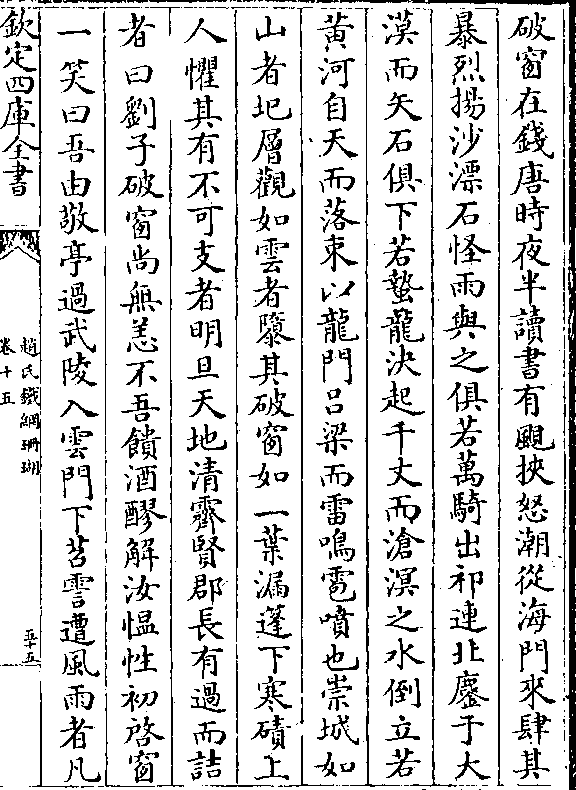 破窗在錢唐時夜半讀書有颶挾怒潮從海門來肆其
暴烈揚沙漂石怪雨與之俱若萬騎出祁連北鏖于大
漠而矢石俱下若蟄龍決起千丈而滄溟之水倒立若
黃河自天而落束以龍門呂梁而雷鳴雹噴也崇城如
山者圮層觀如雲者隳其破窗如一葉漏蓬下寒磧上
人懼其有不可支者明旦天地清霽賢郡長有過而詰
者曰劉子破窗尚無恙不吾饋酒醪解汝愠性初啓窗
一笑曰吾由敬亭過武陵入雲門下苕霅遭風雨者凡
欽定四庫全書
趙氏鐵網珊瑚
卷十五
五十五